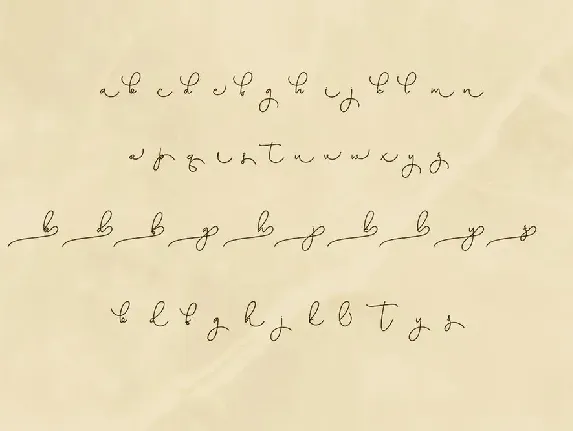 a b c d e f g h i j k l m n
o p q r s t u v w x y z
b d f g h j k l y z
b d f g h j k l t y z